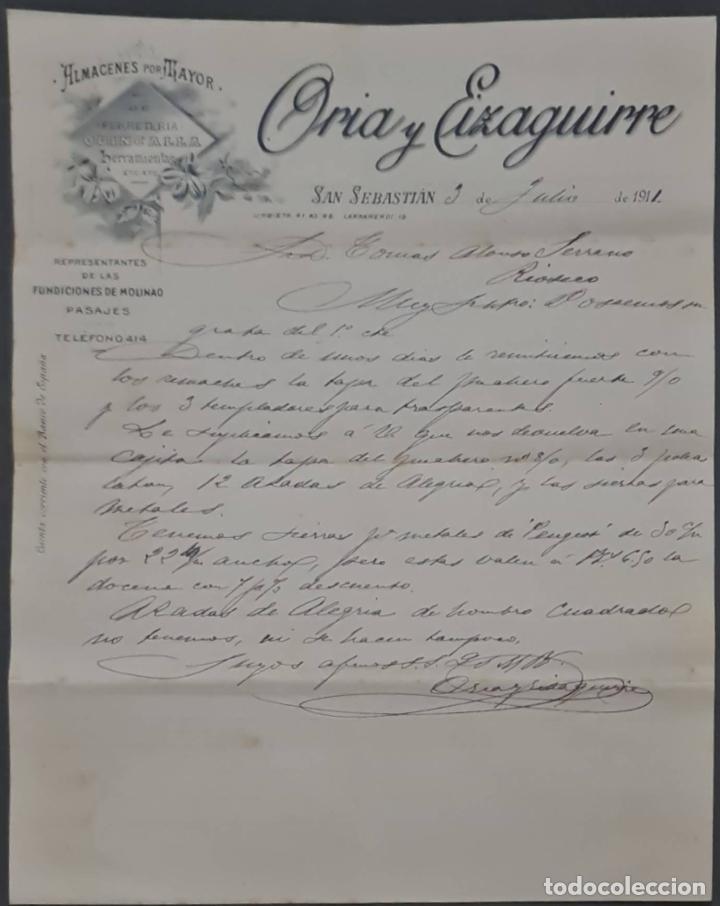 ALMACENES POR MAYOR
DE
FERRETERIA
QUINCALLA
herramientas
ETC. ETC.
Oria y Eizaguirre
SAN SEBASTIÁN 3 de Julio de 1911.
URBIETA 41 43 45 LARRAMENDI 13
REPRESENTANTES
DE LAS
FUNDICIONES DE MOLINAO
PASAJES
TELÉFONO 414
Cuenta corriente con el Banco de España
Sr. D. Tomas Alonso Serrano
Rioseco
Muy Sr. Poseemos su
grata del 1º cte
Dentro de unos dias le remitiremos con
los remaches la tapa del puchero fuerte 9/0
y los 3 templadores para trasparentes.
Le suplicamos á V. que nos devuelva en una
cajita la tapa del puchero nº 3/0, las 3
12 Azadas de Alegria, y las sierras para
metales.
Tenemos sierras pª metales de "Peugeot" de 30 c/m
por 22 m/m ancho, pero estas valen á 6.50 la
docena con 7 p% descuento.
Azadas de Alegria de hombro cuadradas
no tenemos, ni se hacen tampoco.
Suyos afmos S.S. Q B S M
Oria y Eizaguirre
todocoleccion
todocoleccion.net